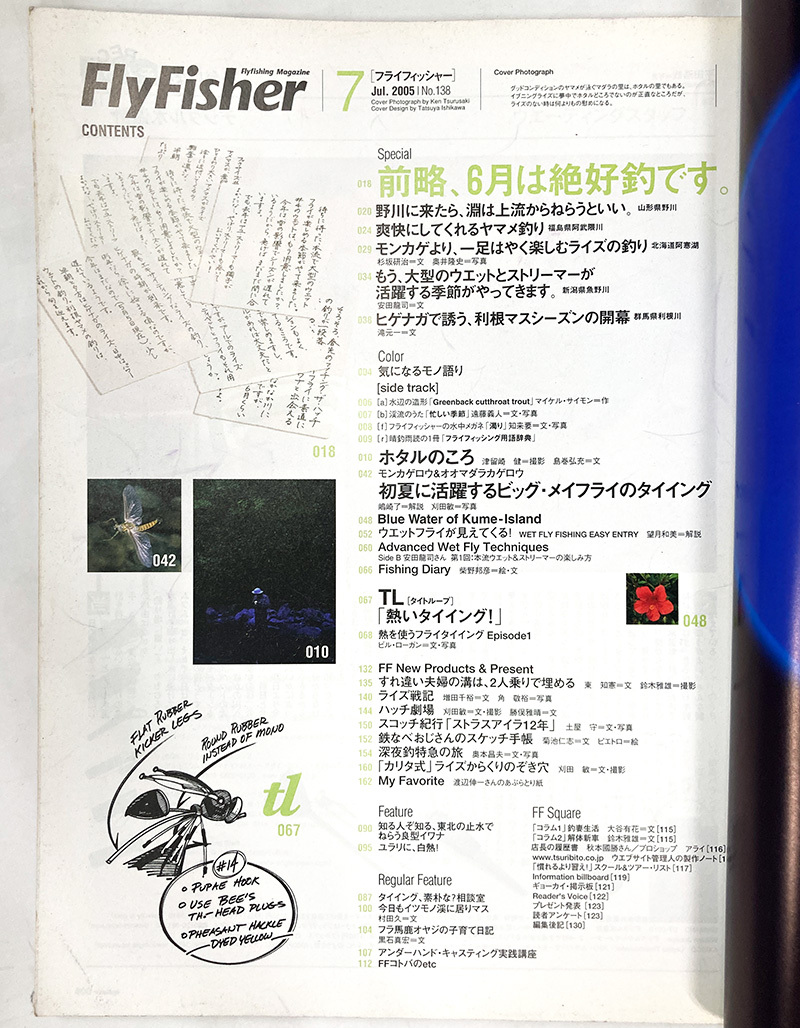 FlyFisher
Flyfishing Magazine
7
[フライフィッシャー]
Jul. 2005 | No.138
Cover Photograph by Ken Tsurusaki
Cover Design by Tatsuya Ishikawa
Cover Photograph
グッドコンディションのヤマメが泳ぐマダラの里は、ホタルの里でもある。
イブニングライズに夢中でホタルどころでないのが正直なところだが、
ライズのない時は何よりもの慰めになる。
CONTENTS
Special
018 前略、6月は絶好釣です。
020 野川に来たら、淵は上流からねらうといい。 山形県野川
024 爽快にしてくれるヤマメ釣り 福島県阿武隈川
029 モンカゲより、一足はやく楽しむライズの釣り 北海道阿寒湖
杉坂研治=文 奥井隆史=写真
034 もう、大型のウエットとストリーマーが
活躍する季節がやってきます。 新潟県魚野川
安田龍司=文
038 ヒゲナガで誘う、利根マスシーズンの開幕 群馬県利根川
滝元一=文
Color
004 気になるモノ語り
[side track]
006 [a]水辺の造形「Greenback cutthroat trout」マイケル・サイモン=作
007 [b]渓流のうた「忙しい季節」遠藤義人=文・写真
008 [f]フライフィッシャーの水中メガネ「濁り」知来要=文・写真
009 [r]晴釣雨読の1冊「フライフィッシング用語辞典」
010 ホタルのころ 津留崎 健=撮影 島巻弘充=文
042 モンカゲロウ&オオマダラカゲロウ
初夏に活躍するビッグ・メイフライのタイイング
嶋崎了=解説 刈田敏=写真
048 Blue Water of Kume-Island
052 ウエットフライが見えてくる! WET FLY FISHING EASY ENTRY 望月和美=解説
060 Advanced Wet Fly Techniques
Side B 安田龍司さん 第1回:本流ウエット&ストリーマーの楽しみ方
066 Fishing Diary 柴野邦彦=絵・文
067 TL [タイトループ]
「熱いタイイング!」
068 熱を使うフライタイイング Episode1
ビル・ローガン=文・写真
132 FF New Products & Present
135 すれ違い夫婦の溝は、2人乗りで埋める 東 知憲=文 鈴木雅雄=撮影
140 ライズ戦記 増田千裕=文 角 敬裕=写真
144 ハッチ劇場 刈田敏=文・撮影 勝俣雅晴=文
150 スコッチ紀行「ストラスアイラ12年」 土屋 守=文・写真
152 鉄なべおじさんのスケッチ手帳 菊池仁志=文 ピエトロ=絵
154 深夜釣特急の旅 奥本昌夫=文・写真
160 「カリタ式」ライズからくりのぞき穴 刈田 敏=文・撮影
162 My Favorite 渡辺伸一さんのあぶらとり紙
Feature
090 知る人ぞ知る、東北の止水で
ねらう良型イワナ
095 ユラリに、白熱!
Regular Feature
087 タイイング、素朴な?相談室
100 今日もイツモノ渓に居りマス
村田久=文
104 フラ馬鹿オヤジの子育て日記
黒石真宏=文
107 アンダーハンド・キャスティング実践講座
112 FFコトバのetc
FF Square
「コラム1」釣妻生活 大谷有花=文[115]
「コラム2」解体新車 鈴木雅雄=文[115]
店長の履歴書 秋本國勝さん/プロショップ アライ[116]
www.tsuribito.co.jp ウエブサイト管理人の製作ノート
「慣れるより習え!」スクール&ツアー・リスト[117]
Information billboard[119]
ギョーカイ・掲示板[121]
Reader's Voice[122]
プレゼント発表[123]
読者アンケート[123]
編集後記[130]
018
042
010
048
FLAT RUBBER
KICKER LEGS
ROUND RUBBER
INSTEAD OF MONO
tl
067
#14
o PUPAE HOOK
o USE BEE'S
TH-HEAD PLUGS
o PHEASANT HACKLE
DYED YELLOW